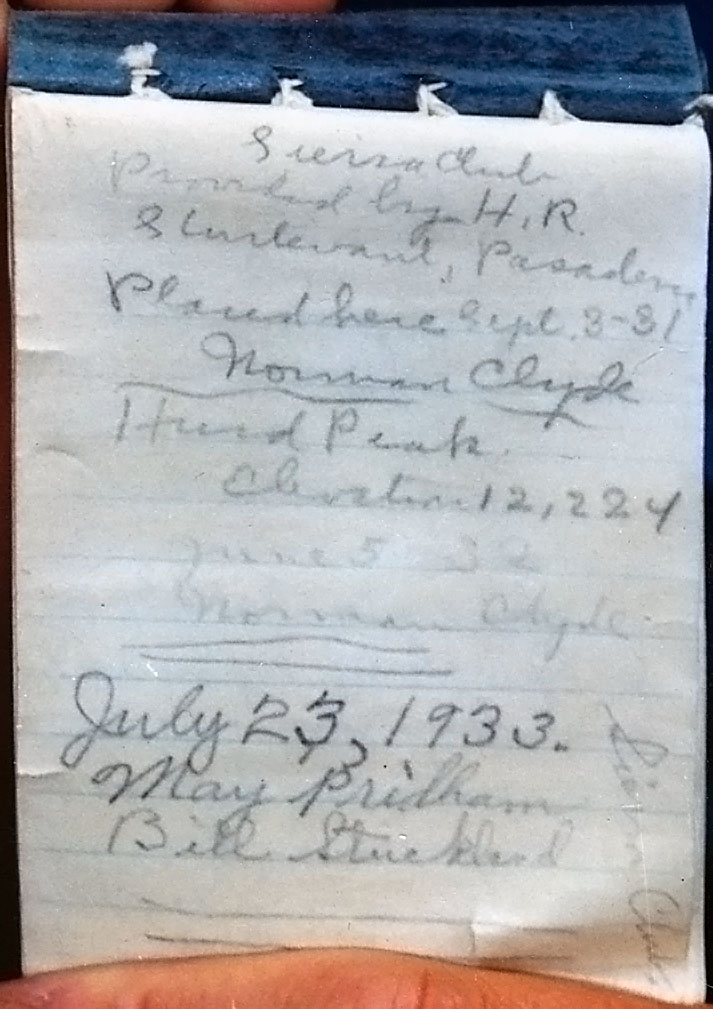 Sierra Club
Provided by H. R.
Sturtevant, Pasadena
Placed here Sept. 3-31
Norman Clyde
Hurd Peak.
Elevation 12,224
June 5 32
Norman Clyde
July 23, 1933.
May Pridham
Bill Stuckland
Sierra Club